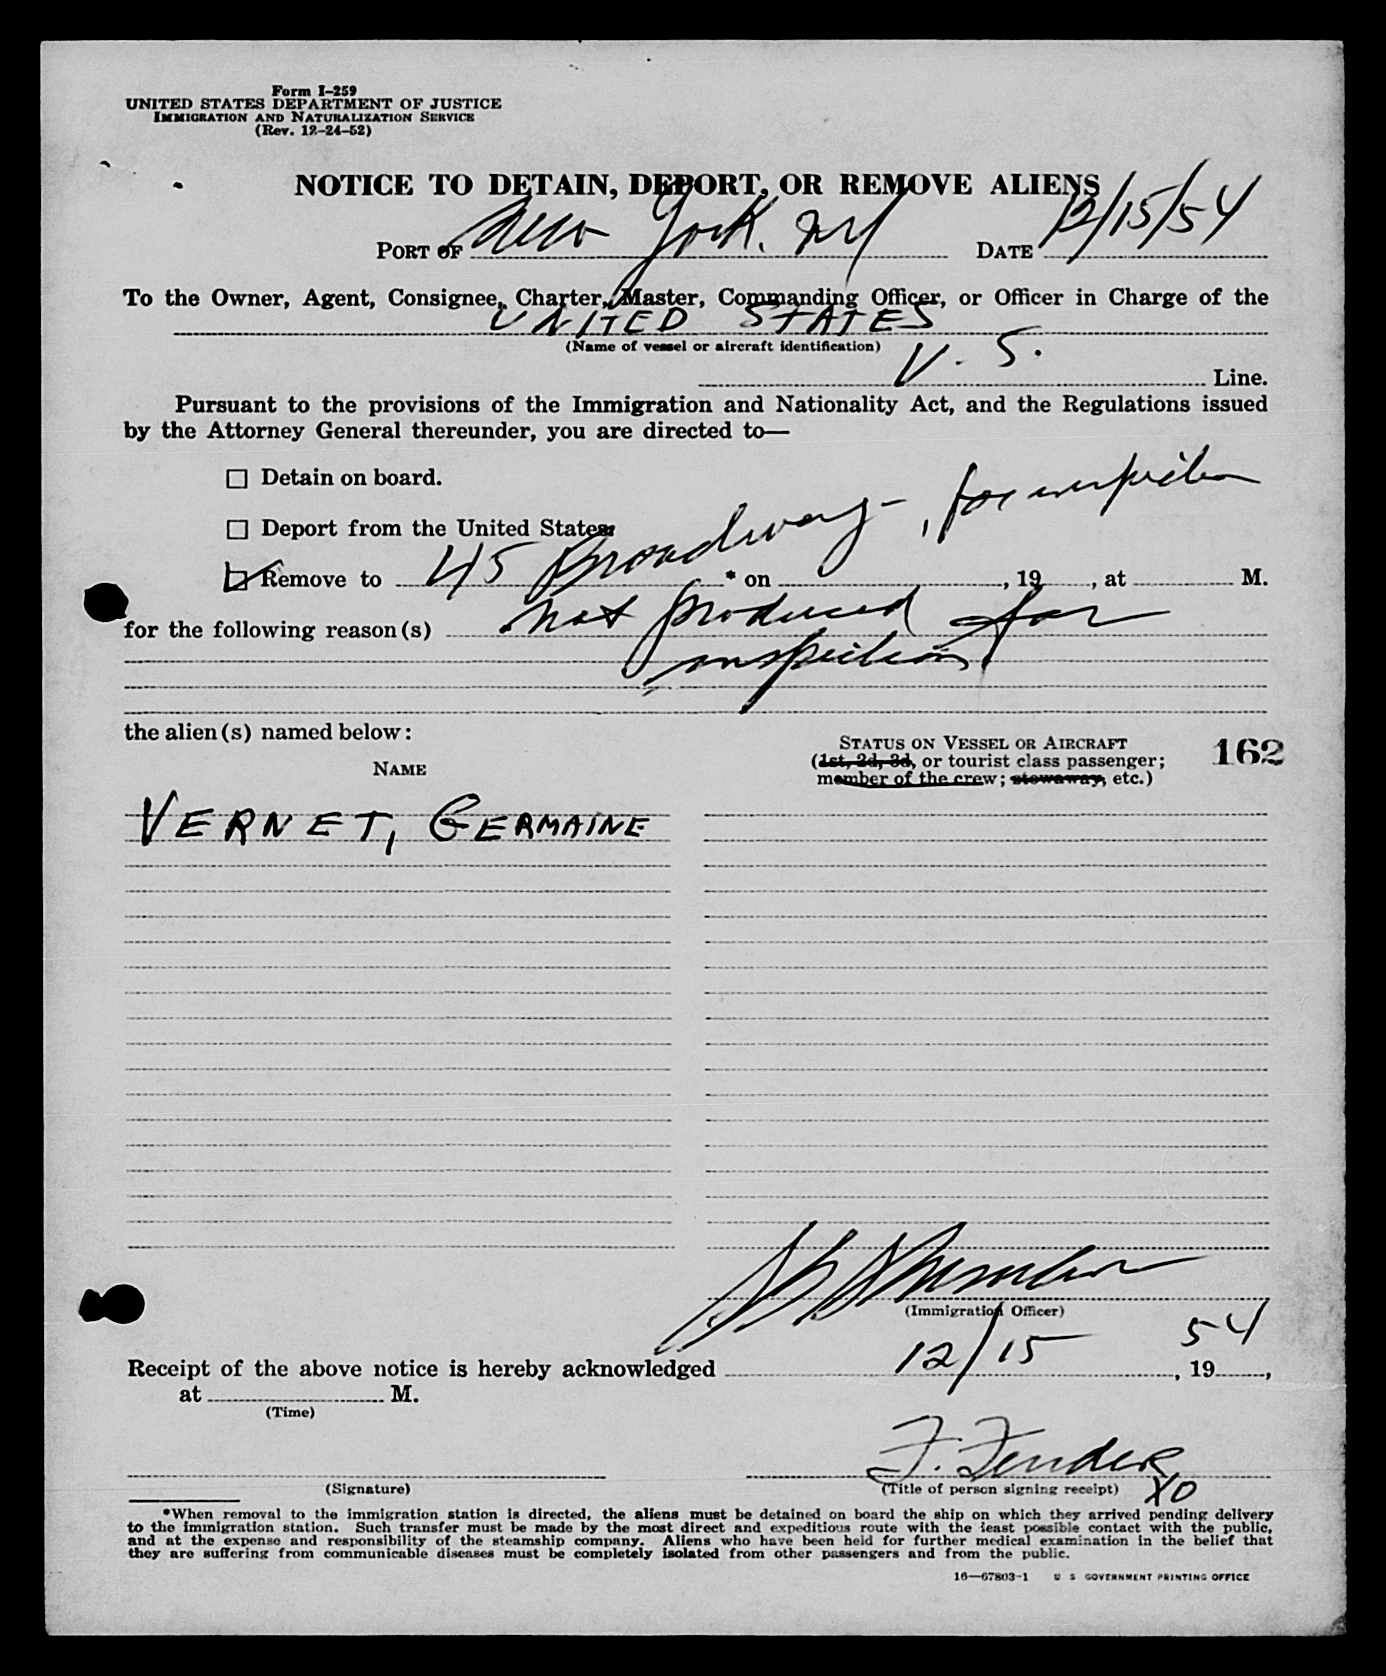 Form I-259
UNITED STATES DEPARTMENT OF JUSTICE
IMMIGRATION AND NATURALIZATION SERVICE
(Rev. 12-24-52)
NOTICE TO DETAIN, DEPORT, OR REMOVE ALIENS
PORT OF New York, NY DATE 12/15/54
To the Owner, Agent, Consignee, Charter, Master, Commanding Officer, or Officer in Charge of the
UNITED STATES
(Name of vessel or aircraft identification)
U. S. Line.
Pursuant to the provisions of the Immigration and Nationality Act, and the Regulations issued
by the Attorney General thereunder, you are directed to—
☐ Detain on board.
☐ Deport from the United States.
☑ Remove to 45 Broadway, for inspection * on , 19 , at M.
for the following reason(s) not produced for
inspection
the alien(s) named below:
NAME
STATUS ON VESSEL OR AIRCRAFT
(1st, 2d, 3d, or tourist class passenger;
member of the crew; stowaway, etc.)
162
VERNET, GERMAINE
(Immigration Officer)
Receipt of the above notice is hereby acknowledged 12/15, 1954,
at M.
(Time)
F. Fender
XO
(Signature) (Title of person signing receipt)
*When removal to the immigration station is directed, the aliens must be detained on board the ship on which they arrived pending delivery
to the immigration station. Such transfer must be made by the most direct and expeditious route with the least possible contact with the public,
and at the expense and responsibility of the steamship company. Aliens who have been held for further medical examination in the belief that
they are suffering from communicable diseases must be completely isolated from other passengers and from the public.
16—67803-1 U S GOVERNMENT PRINTING OFFICE